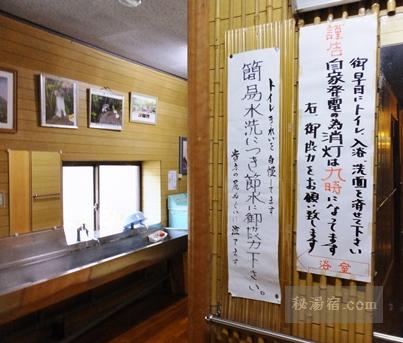 謹告
御早目にトイレ、入浴、洗面を済せて下さい
自家発電の為消灯は九時になってます
右、御協力をお願い致します
浴室
トイレきれいを自慢してます
簡易水洗につき節水に御協力下さい。
秘湯宿.com